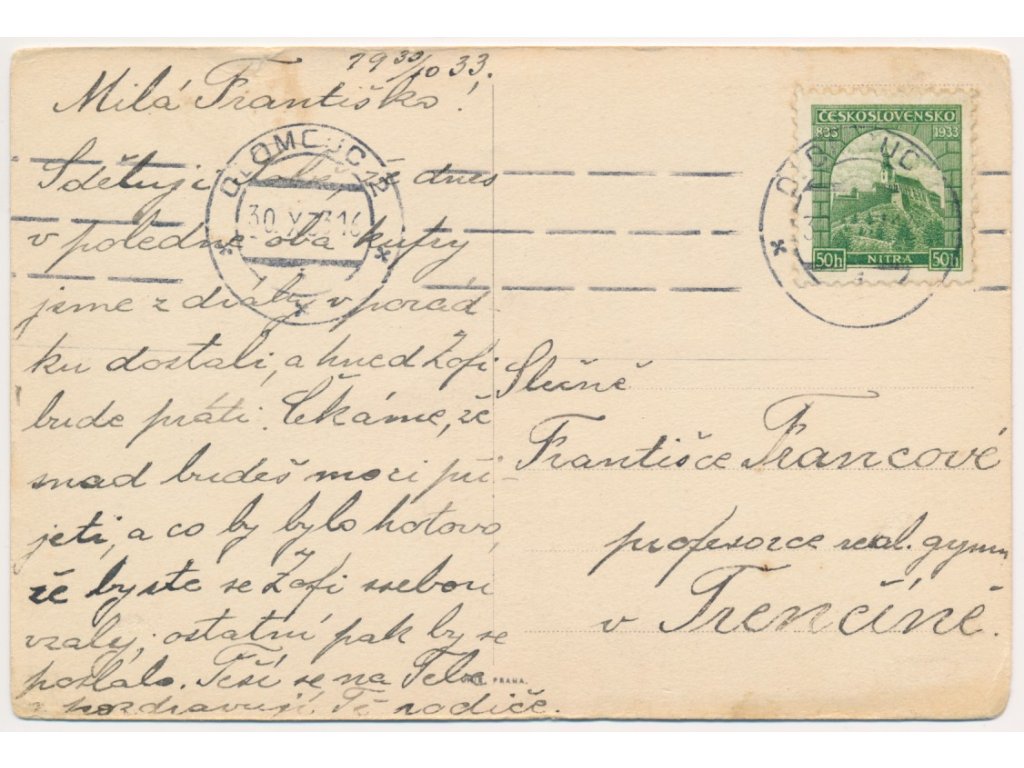 19 30/10 33.
Milá Františko!
Sděluji Tobě, že dnes
v poledne oba kufry
jsme z dráhy v pořád-
ku dostali, a hned Žofi
bude práti. Čekáme, že
snad budeš moci při-
jeti, a co by bylo hotovo,
že byste se Žofi ssebou
vzaly; ostatní pak by se
poslalo. Těší se na Tebe
a pozdravují Tě rodiče.
OLOMOUC 2
30.X.33.16
1
ČESKOSLOVENSKO
833 1933
NITRA
50h 50h
OLOMOUC
Slečně
Františce Francové
profesorce real. gymn
v Trenčíně.
PRAHA.